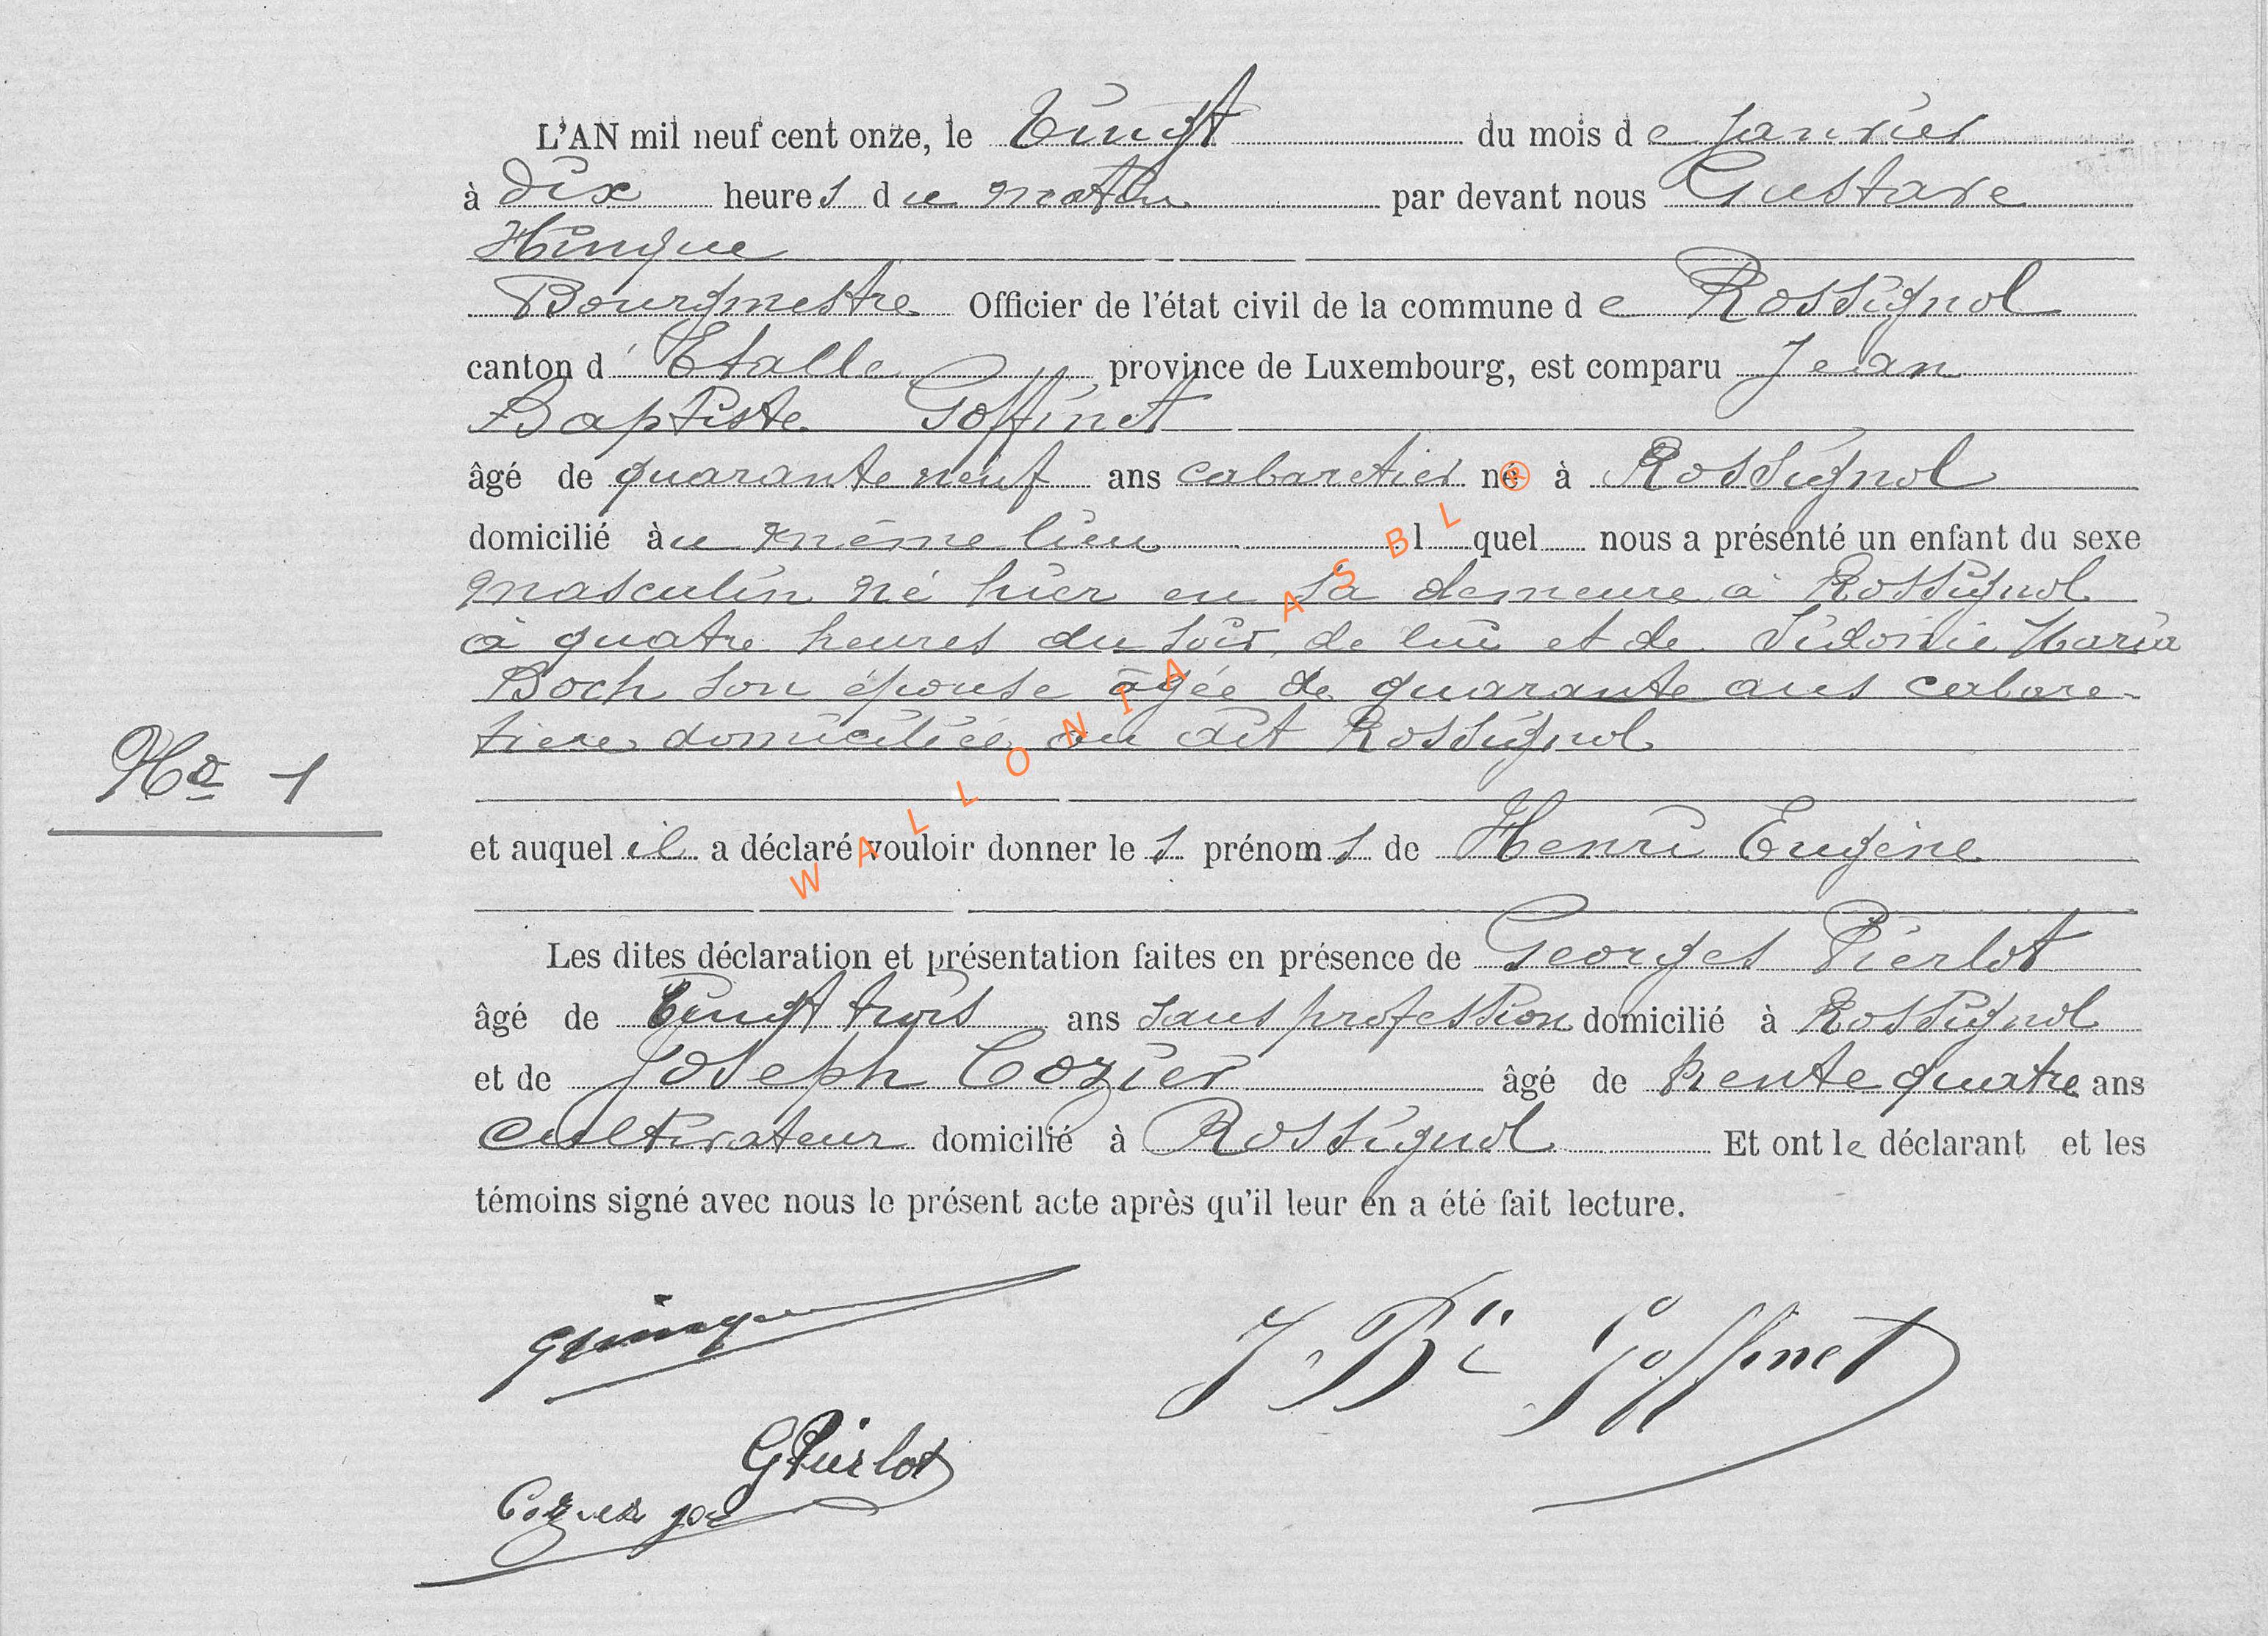 L'AN mil neuf cent onze, le Vingt du mois de Janvier
à dix heures du matin par devant nous Gustave
Hinque
Bourgmestre Officier de l'état civil de la commune de Rossignol
canton d'Etalle province de Luxembourg, est comparu Jean
Baptiste Goffinet
âgé de quarante neuf ans cabaretier né à Rossignol
domicilié au même lieu lquel nous a présenté un enfant du sexe
masculin né hier en sa demeure à Rossignol
à quatre heures du soir, de lui et de Sidonie Maria
Boch son épouse âgée de quarante ans cabare-
tière domiciliée au dit Rossignol
No 1
et auquel il a déclaré vouloir donner les prénoms de Henri Eugène
Les dites déclaration et présentation faites en présence de Georges Pierlot
âgé de Vingt trois ans sans profession domicilié à Rossignol
et de Joseph Cozier âgé de trente quatre ans
cultivateur domicilié à Rossignol Et ont le déclarant et les
témoins signé avec nous le présent acte après qu'il leur en a été fait lecture.
J. Bte Goffinet
GPierlot
Cozier jos
WALLONIA ASBL ®